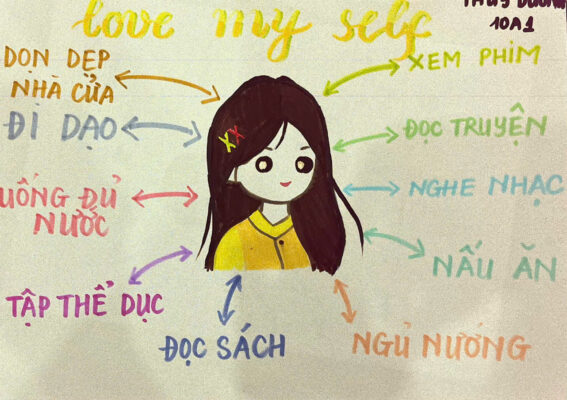 love my self
10A1
DỌN DẸP
NHÀ CỬA
ĐI DẠO
UỐNG ĐỦ
NƯỚC
TẬP THỂ DỤC
ĐỌC SÁCH
XEM PHIM
ĐỌC TRUYỆN
NGHE NHẠC
NẤU ĂN
NGỦ NƯỚNG